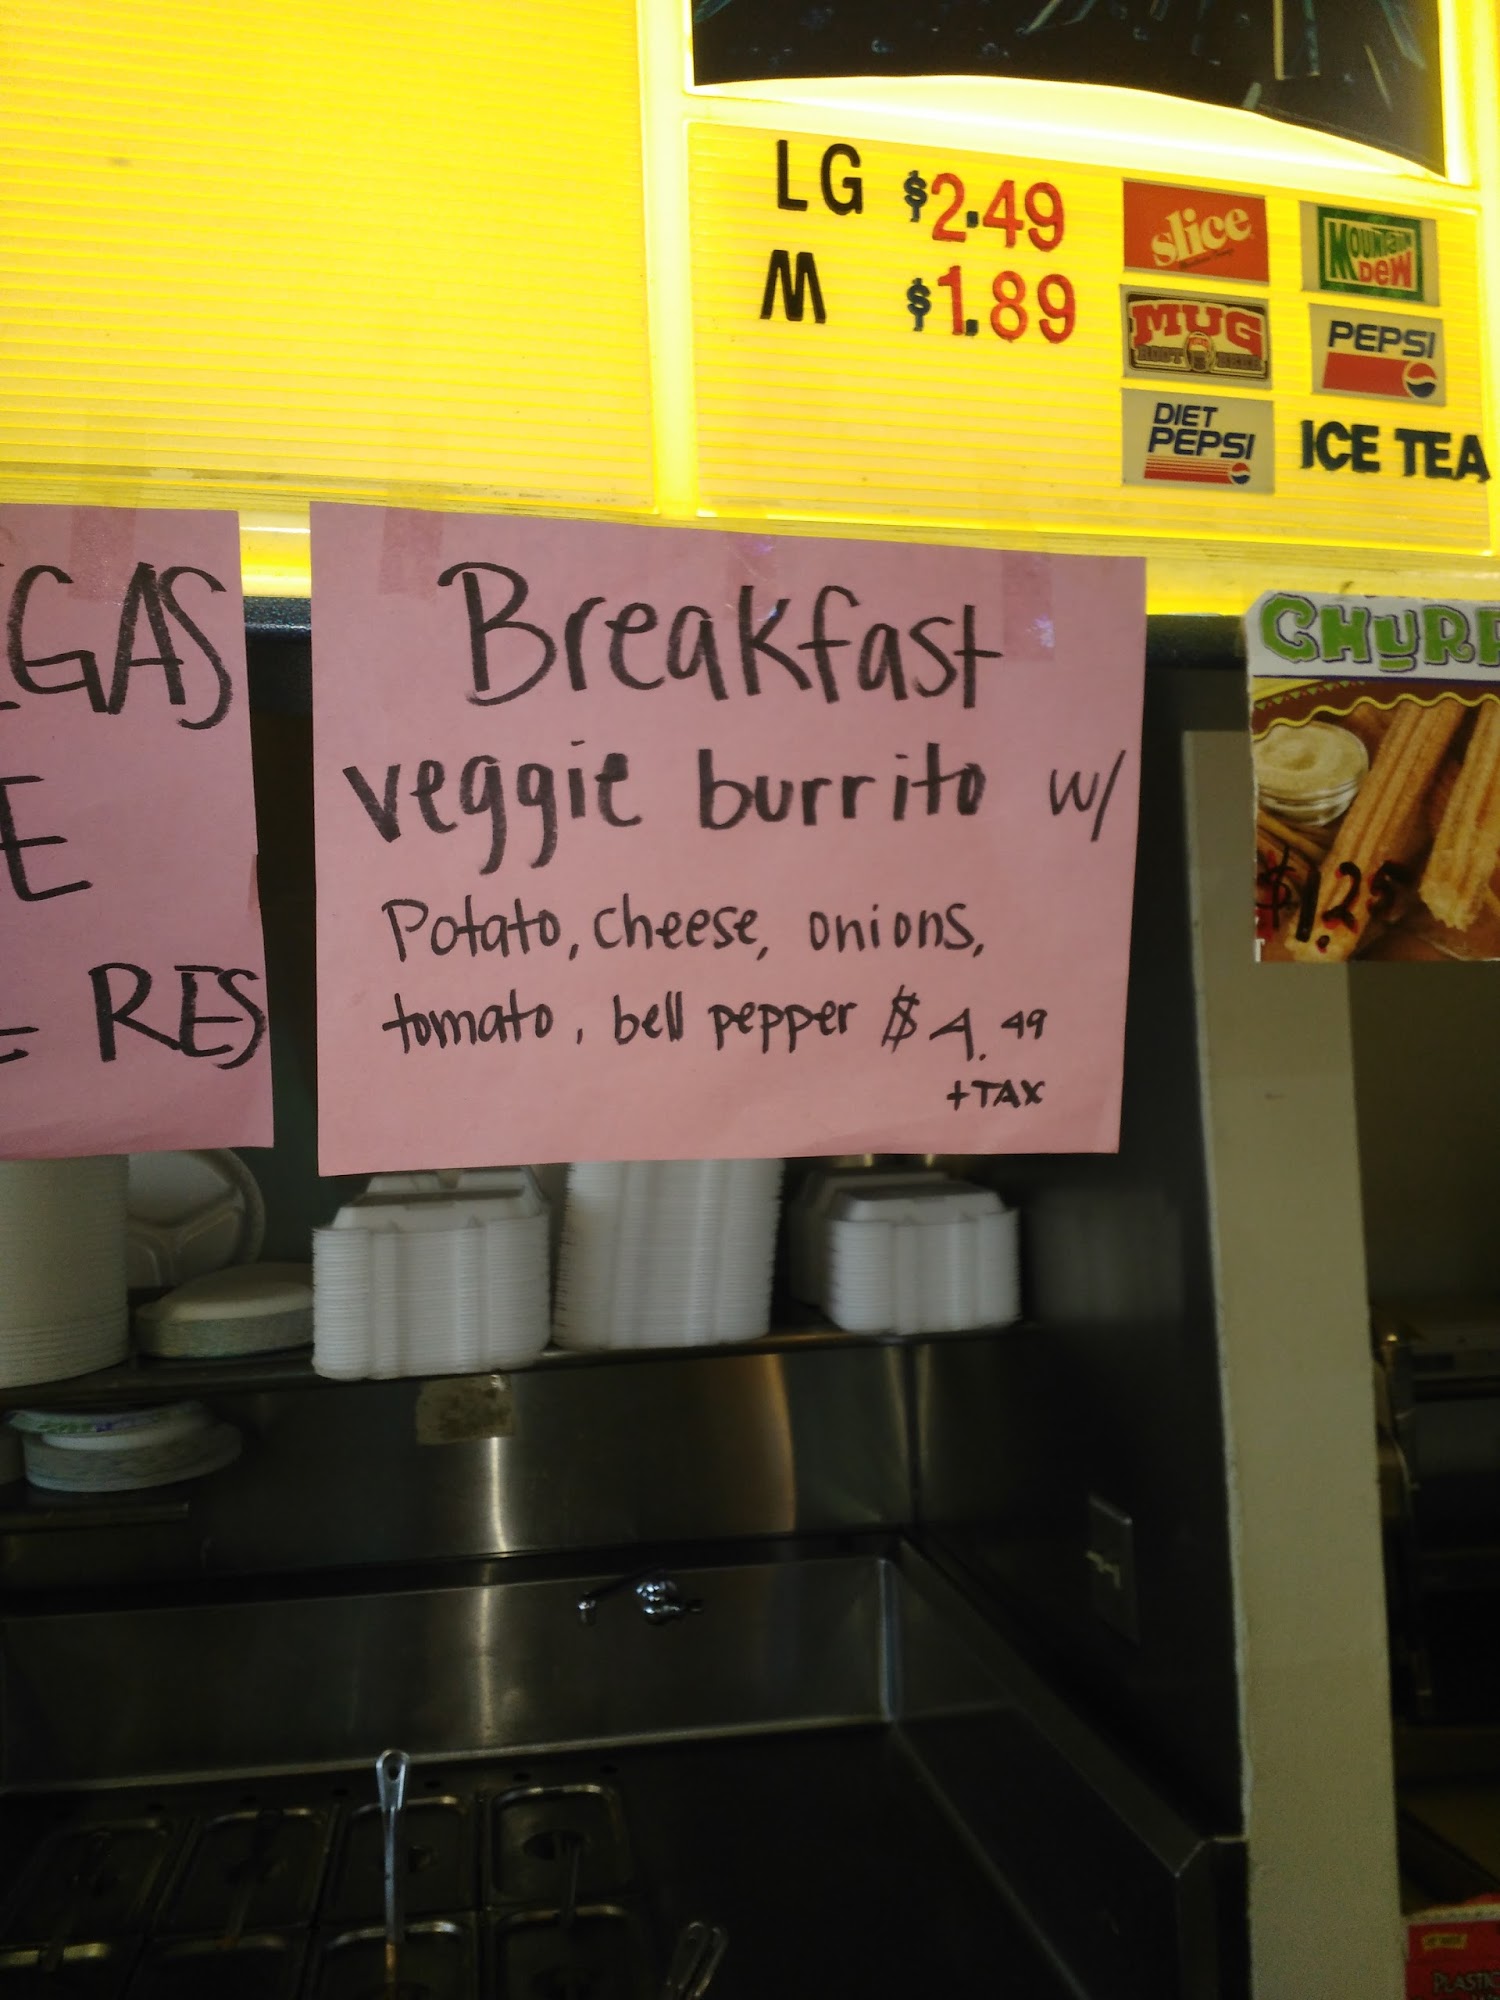 LG $2.49
M $1.89
slice
MOUNTAIN DEW
MUG
ROOT BEER
PEPSI
DIET PEPSI
ICE TEA
GAS
E
RES
Breakfast
veggie burrito w/
Potato, cheese, onions,
tomato, bell pepper $4.49
+TAX
CHURR
$1.25
PLASTIC